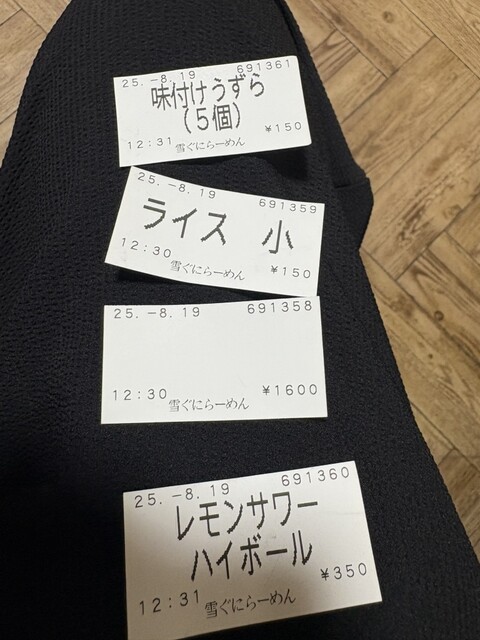 25.-8.19 691361
味付けうずら
(5個)
12:31 雪ぐにらーめん ¥150
25.-8.19 691359
ライス 小
12:30 雪ぐにらーめん ¥150
25.-8.19 691358
12:30 雪ぐにらーめん ¥1600
25.-8.19 691360
レモンサワー
ハイボール
12:31 雪ぐにらーめん ¥350